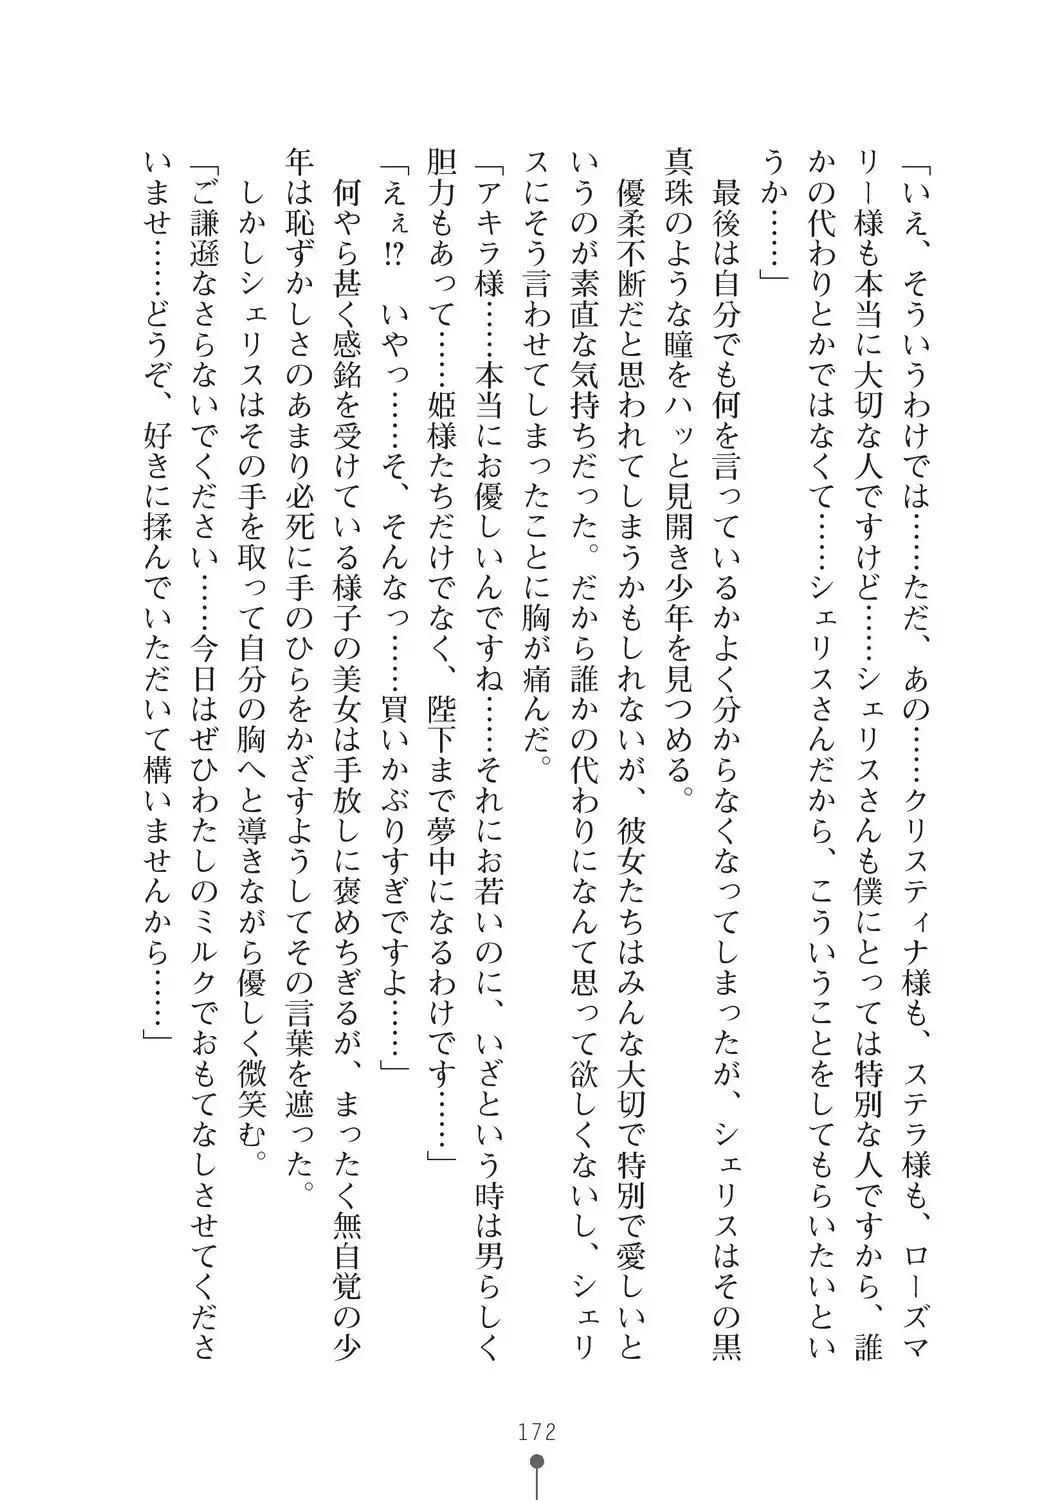 「いえ、そういうわけでは……ただ、あの……クリスティナ様も、ステラ様も、ローズマ
リー様も本当に大切な人ですけど……シェリスさんも僕にとっては特別な人ですから、誰
かの代わりとかではなくて……シェリスさんだから、こういうことをしてもらいたいとい
うか……」
　最後は自分でも何を言っているかよく分からなくなってしまったが、シェリスはその黒
真珠のような瞳をハッと見開き少年を見つめる。
　優柔不断だと思われてしまうかもしれないが、彼女たちはみんな大切で特別で愛しいと
いうのが素直な気持ちだった。だから誰かの代わりになんて思って欲しくないし、シェリ
スにそう言わせてしまったことに胸が痛んだ。
「アキラ様……本当にお優しいんですね……それにお若いのに、いざという時は男らしく
胆力もあって……姫様たちだけでなく、陛下まで夢中になるわけです……」
「えぇ!?　いやっ……そ、そんなっ……買いかぶりすぎですよ……」
　何やら甚く感銘を受けている様子の美女は手放しに褒めちぎるが、まったく無自覚の少
年は恥ずかしさのあまり必死に手のひらをかざすようしてその言葉を遮った。
　しかしシェリスはその手を取って自分の胸へと導きながら優しく微笑む。
「ご謙遜なさらないでください……今日はぜひわたしのミルクでおもてなしさせてくださ
いませ……どうぞ、好きに揉んでいただいて構いませんから……」
172